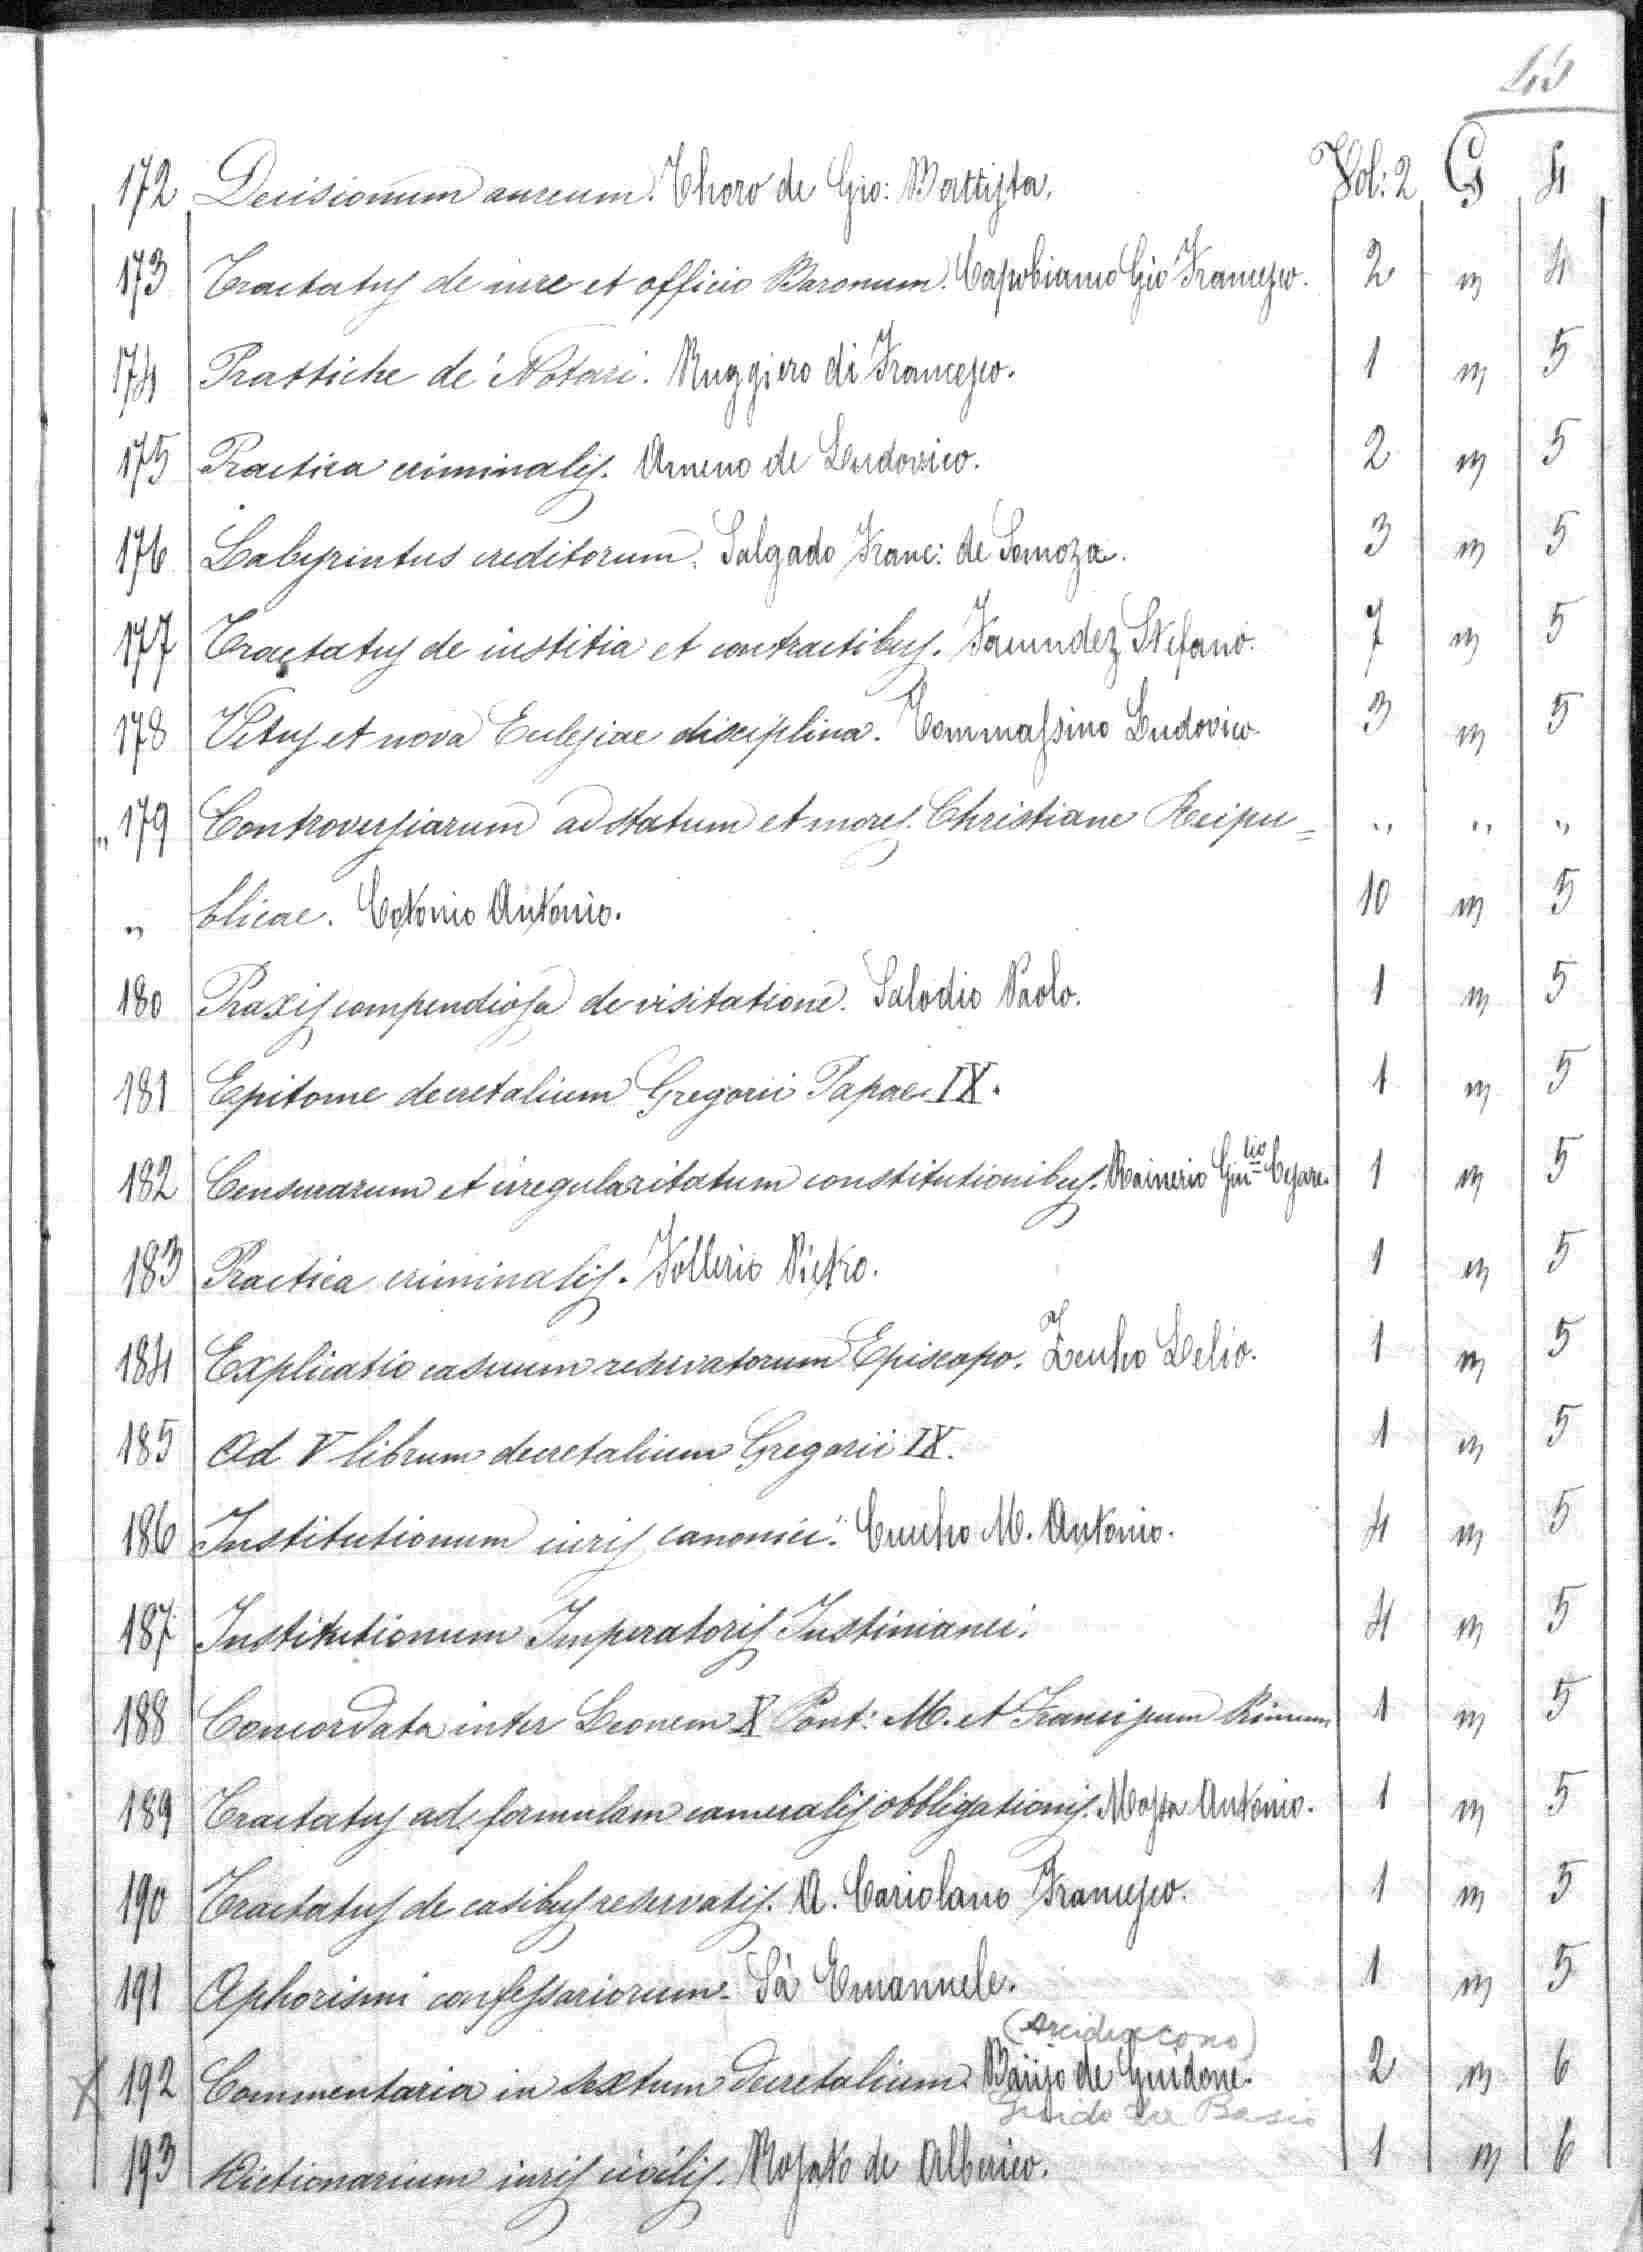 45
172 Decisionum aureum. Thoro de Gio: Battista. Vol: 2 G 4
173 Tractatus de iure et officio Baronum. Capobianco Gio Francesco. 2 " 4
174 Prattiche de' Notari. Ruggiero di Francesco. 1 " 5
175 Practica criminalis. Ameno de Ludovico. 2 " 5
176 Labyrintus creditorum. Salgado Franc: de Somoza. 3 " 5
177 Tractatus de iustitia et contractibus. Faundez Stefano. 7 " 5
178 Vetus et nova Eclesiae disciplina. Tommassino Ludovico. 3 " 5
" 179 Controversiarum ad statum et mores Christiane Reipu= " " "
" blicae. Cotonio Antonio. 10 " 5
180 Praxis compendiosa de visitatione. Salodio Paolo. 1 " 5
181 Epitome decretalium Gregorii Papae IX. 1 " 5
182 Censurarum et irregularitatum constitutionibus. Rainerio Giulio Cesare. 1 " 5
183 Practica criminalis. Follerio Pietro. 1 " 5
184 Explicatio casuum reservatorum Episcopo. Zeucho Lelio. 1 " 5
185 Ad V librum decretalium Gregorii IX. 1 " 5
186 Institutionum iuris canonici. Cuucho M. Antonio. 4 " 5
187 Institutionum Imperatoris Justinianei. 4 " 5
188 Concordata inter Leonem X Pont: M. et Franciscum Primum 1 " 5
189 Tractatus ad formulam cameralis obbligationis. Massa Antonio. 1 " 5
190 Tractatus de casibus reservatis. A. Coriolano Francesco. 1 " 5
191 Aphorismi confessariorum. Sà Emanuele. 1 " 5
(Arcidiacono)
X 192 Commentaria in sextum decretalium. Baiijo de Guidone. 2 " 6
Guido da Basio
193 Dictionarium iuris civilis. Rosato de Alberico. 1 " 6